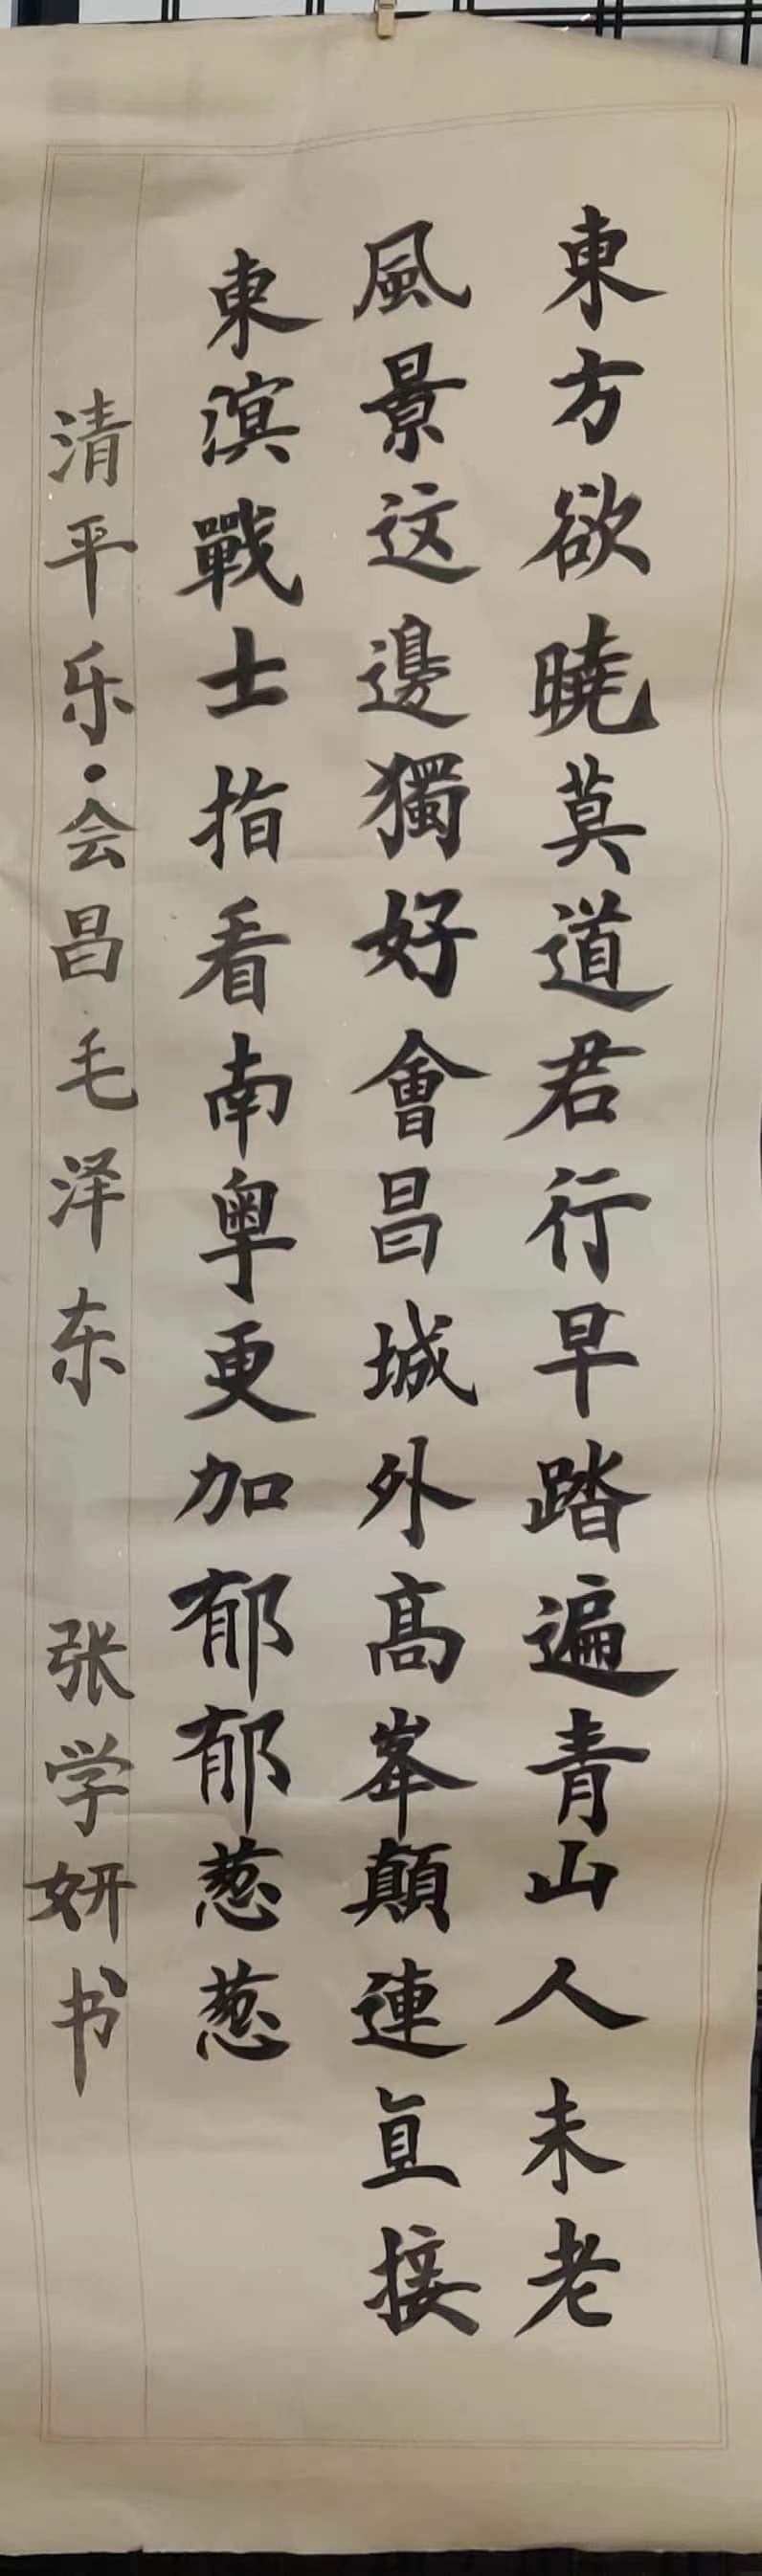 東方欲曉莫道君行早踏遍青山人未老
風景这邊獨好會昌城外高峯顛連直接
東溟戰士指看南粤更加郁郁葱葱
清平乐·会昌毛泽东 张学妍书